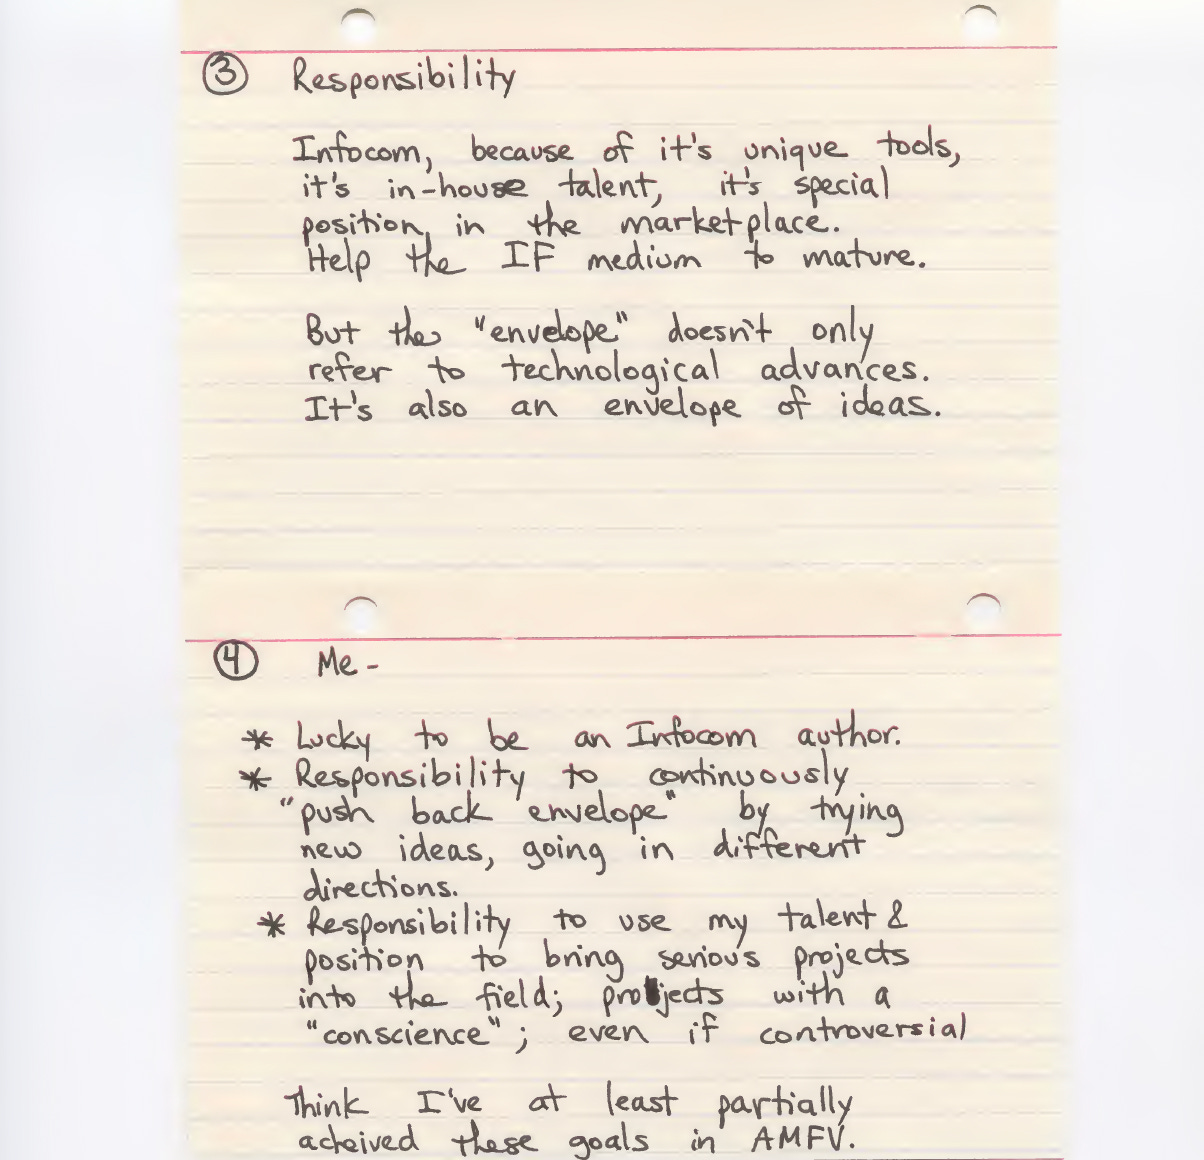 ③ Responsibility
Infocom, because of it's unique tools,
it's in-house talent, it's special
position, in the marketplace.
Help the IF medium to mature.
But the "envelope" doesn't only
refer to technological advances.
It's also an envelope of ideas.
④ Me -
* Lucky to be an Infocom author.
* Responsibility to continuously
"push back envelope" by trying
new ideas, going in different
directions.
* Responsibility to use my talent &
position to bring serious projects
into the field; projects with a
"conscience"; even if controversial
Think I've at least partially
acheived these goals in AMFV.